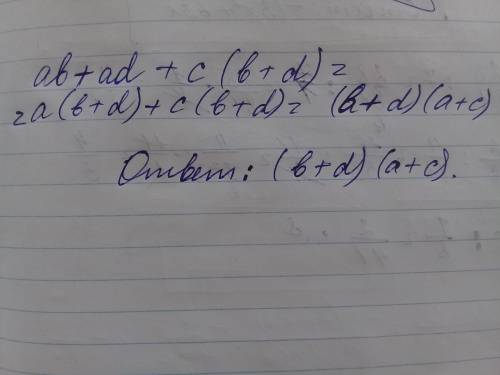 ab+ad + c (b+d) =
= a (b+d) + c (b+d) = (b+d) (a+c)
Ответ: (b+d) (a+c).